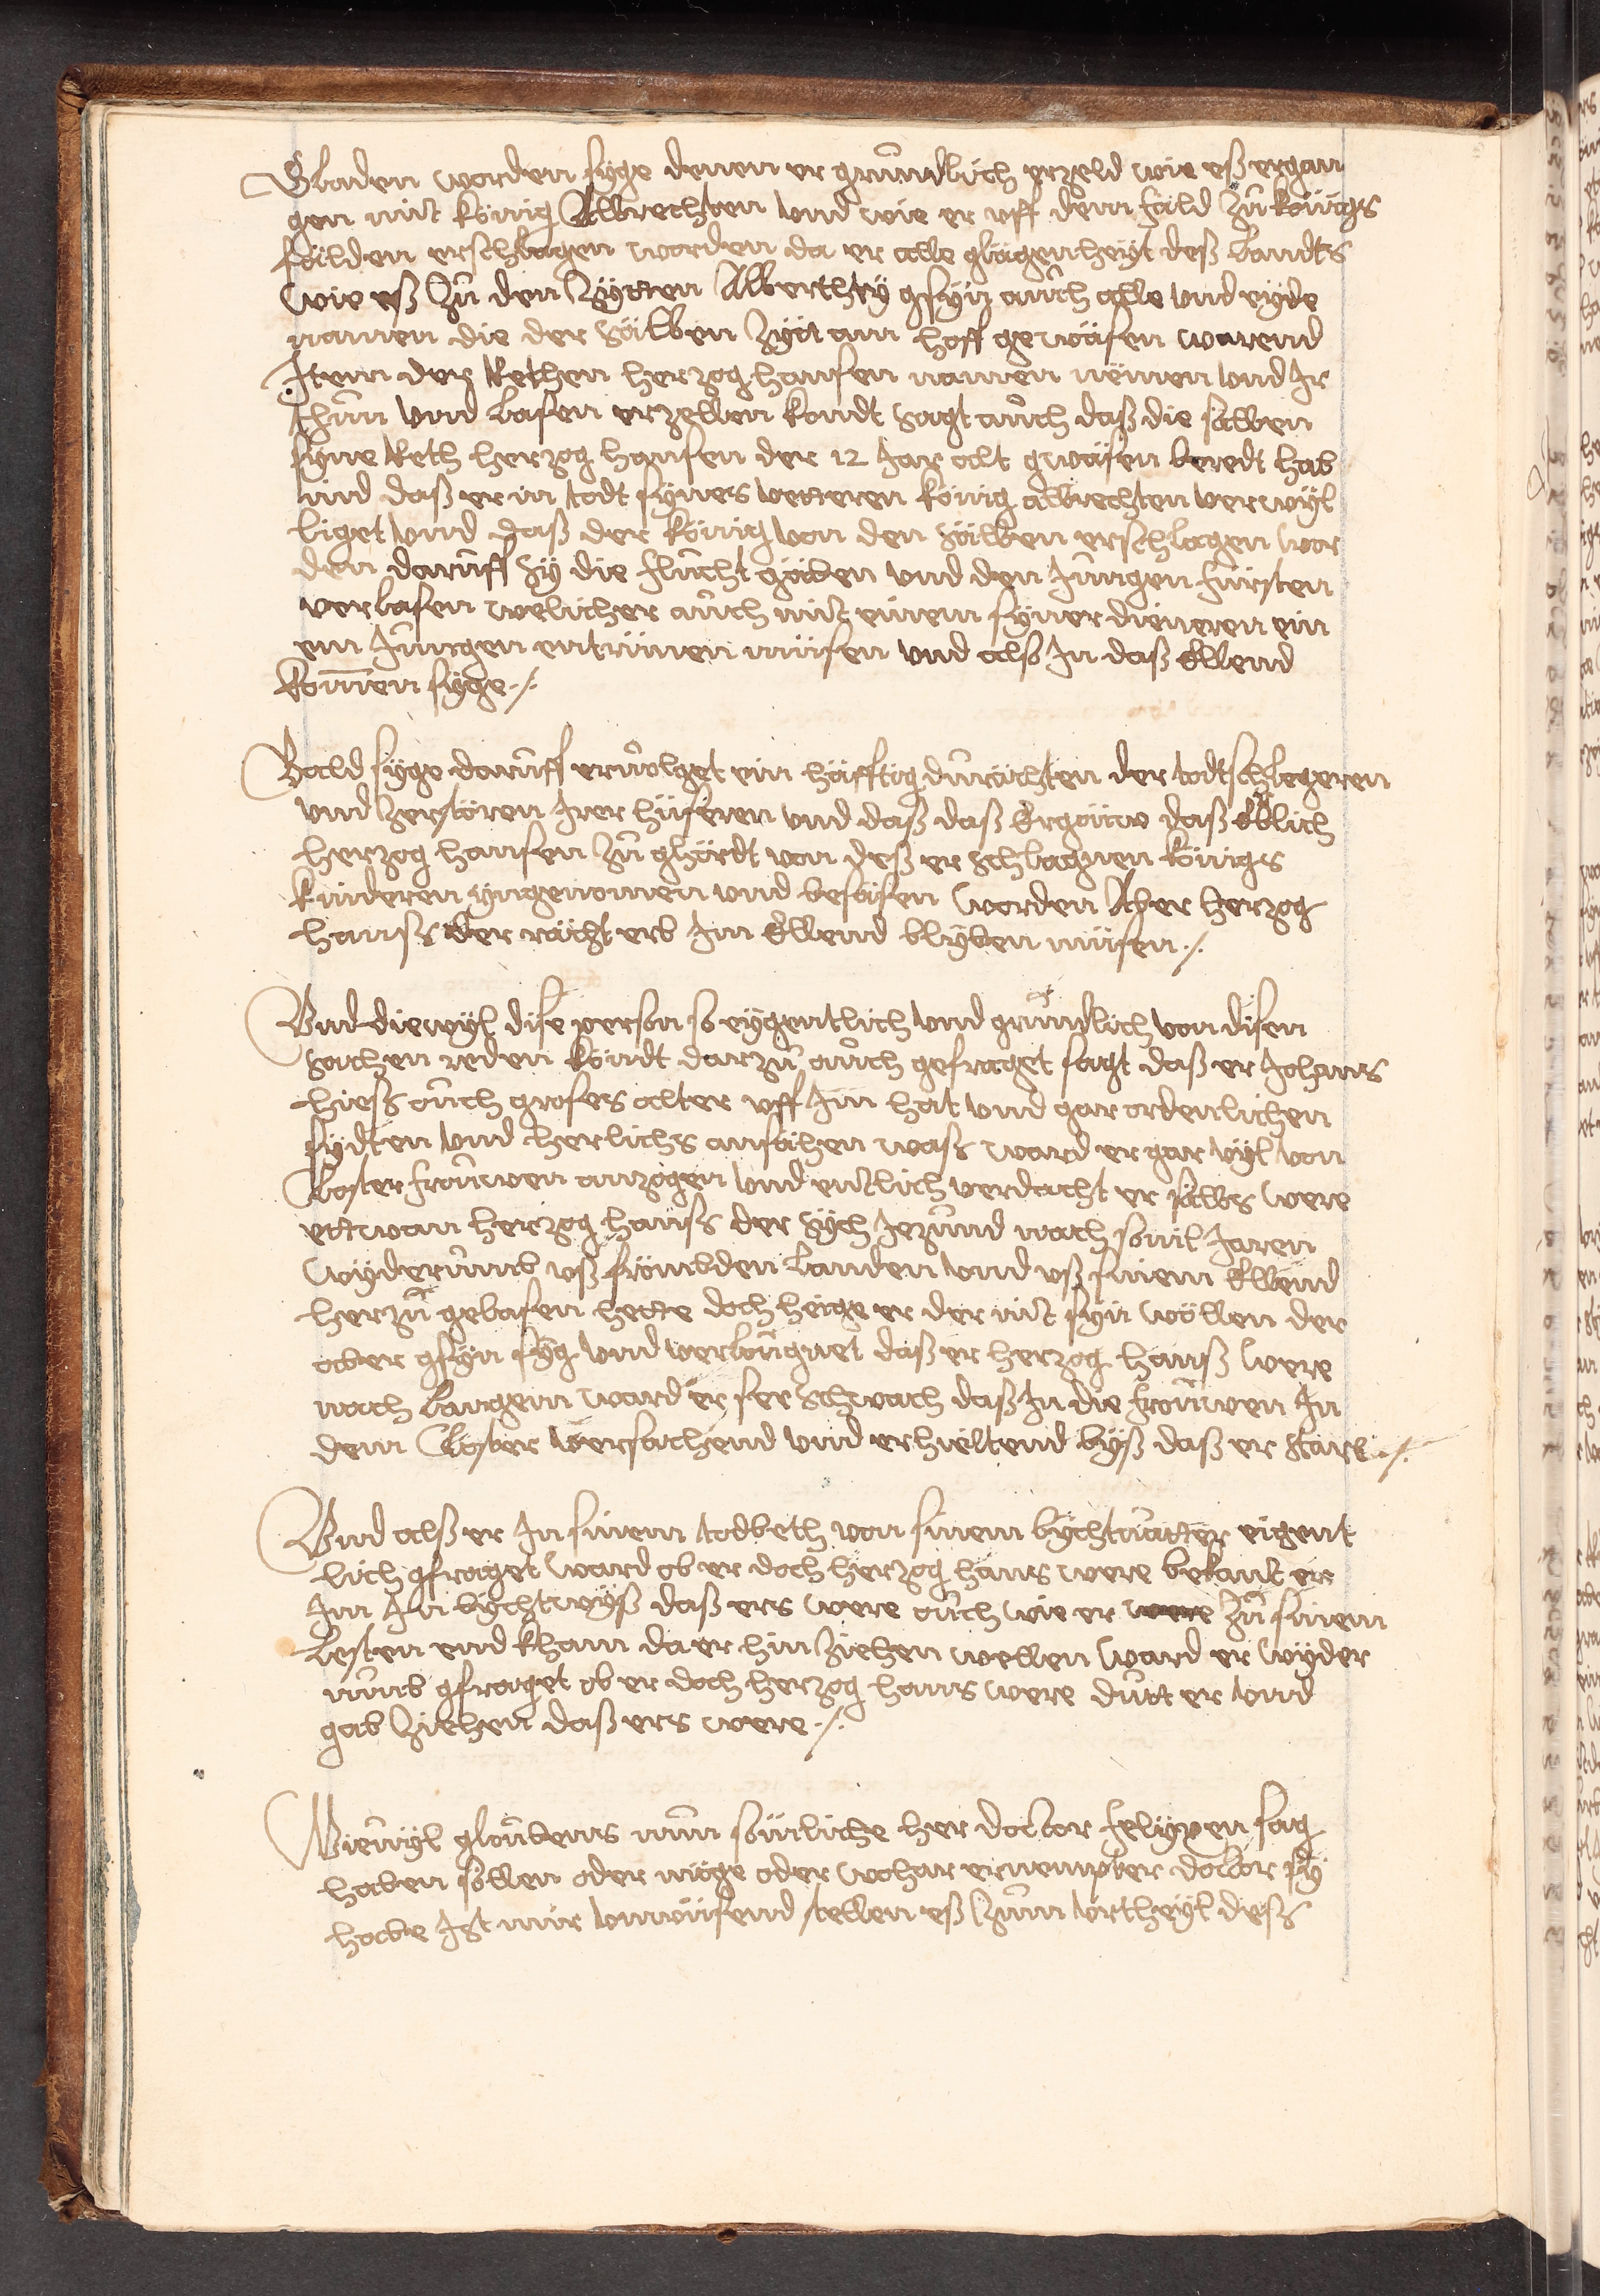 Gladen worden syge denen er gruͦndlich erzeld wie eß ergan
gen mit König Albrechten vnd wie er vff dem fäld zuͦ königs
fälden erschlagen worden da er alle glägenheyt deß landts
wie eß zuͦ den Zÿtten Alberthÿ gsÿn auch alle vnd ÿede
namen die der Sälben Zÿt am hoff gewäsen warend
Item der Rethen herzog hansen namen nëmen vnd Ir
thuͦn vnd lasen erzellen kondt sagt auch daß die sälben
syne Reth herzog hansen der 12 Jar alt gwäsen beredt hab
ind daß er in todt sÿnes vetteren könig albrechten verwÿl
liget vnd daß der könig von den sälben erschlagen wor
den daruff sÿ die flucht gäben vnd den Jungen fürsten
verlasen welicher auch mit einem sÿner dieneren ein
em Jungen entrünen müsen vnd alß In daß Ellend
komen syge ./.
Bald syge daruff ervolget ein häfftig duräcḧten der todtschlegeren
vnd zerstören Irer hüseren vnd daß daß Ergöüw daß Eblich
herzog hansen zuͦ ghördt von deß er schlagnen königs
kinderen yngenomen vnd besäsen worden Aber herzog
hanß der rächt erb Im Ellend blÿben müsen ./.
Vnd diewyl dise person so eÿgentlich vnd gruͦndlich von disen
sachen reden köndt darzuͦ auch gefraget sagt daß er Johans
hieß auch groses alter vff Im hat vnd gar ordenlichen
sÿdten vnd herlichs ansähen waß ward er gar vÿl von
Closter frouwen anzogen vnd entlich verdacht er sälbs were
ettwan herzog hanß der sÿch Jezund nach souil Jaren
wÿderumb vß frömbden landen vnd vß sinem Ellend
herzuͦ gelasen hette doch heige er der nit sÿn wöllen der
aber gsÿn sÿg vnd verlöugnet daß er herzog hanß were
nach langem ward er ser schwach daß In die frouwen In
dem Closter versächend vnd erhieltend byß daß er starb ./.
Vnd alß er In sinem todbeth von sinem bÿchtuatter eigent
lich gfraget ward ob er doch herzog hans were bekant er
Im In bÿchtwÿß daß ers were auch wie er zuͦ sinem
lesten end kham da er hin ziehen wellen ward er wÿder
umb gfraget ob er doch herzog hans were dutt er vnd
gab ziehen daß ers were ./.
Wieuÿl gloubens nun sömliche her doctor felÿxen sag
haben söllen oder möge oder wohar ernempter doctor sÿ
habe Ist mir vnwüsend stellen eß zum vrtheÿl deß